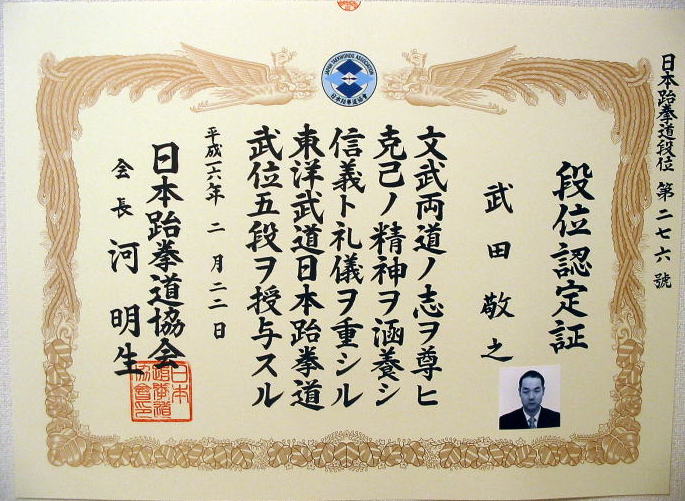 日本跆拳道段位 第二七六號
段位認定証
武田敬之
文武両道ノ志ヲ尊ヒ
克己ノ精神ヲ涵養シ
信義ト礼儀ヲ重シル
東洋武道日本跆拳道
武位五段ヲ授与スル
平成一六年 二月二二日
日本跆拳道協会
会長 河明生
JAPAN TAEKWONDO ASSOCIATION
日本跆拳道協會
日本
跆拳道
協會之印